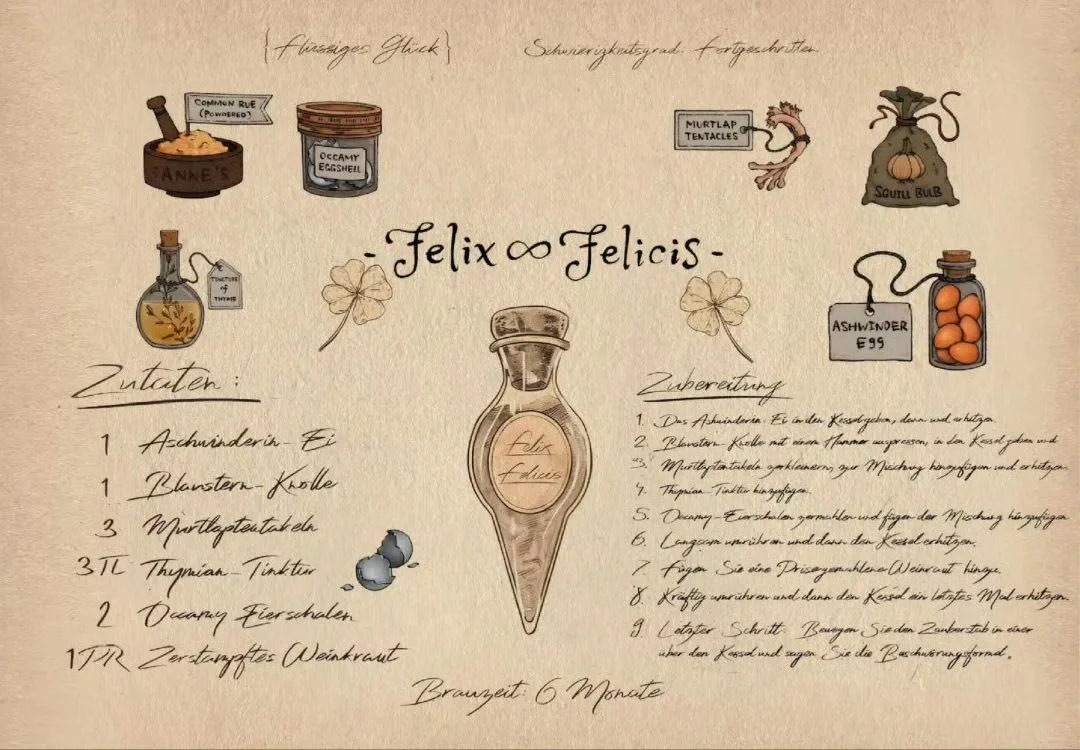 {flüssiges Glück}
Schwierigkeitsgrad: Fortgeschritten
COMMON RUE
(POWDERED)
ANNE'S
OCCAMY
EGGSHELL
MURTLAP
TENTACLES
SQUILL BULB
- Felix ∞ Felicis -
TINCTURE
of
THYME
ASHWINDER
E99
Zutaten :
1 Aschwinderin - Ei
1 Blaustern - Knolle
3 Murtlaptentakeln
3TL Thymian - Tinktur
2 Occamy Eierschalen
1PR Zerstampftes Weinkraut
Felix
Felicis
Zubereitung
1. Das Ashwinderin - Ei in den Kessel geben, dann und erhitzen.
2. Blaustern - Knolle mit einem Hammer auspressen, in den Kessel geben und
3. Murtlaptentakeln zerkleinern, zur Mischung hinzufügen und erhitzen.
4. Thymian - Tinktur hinzufügen.
5. Occamy - Eierschalen zermahlen und fügen der Mischung hinzufügen
6. Langsam umrühren und dann den Kessel erhitzen.
7. Fügen Sie eine Prise gemahlene Weinraut hinzu.
8. Kräftig umrühren und dann den Kessel ein letztes Mal erhitzen.
9. Letzter Schritt: Bewegen Sie den Zauberstab in einer
über den Kessel und sagen Sie die Beschwörungsformel.
Brauzeit: 6 Monate